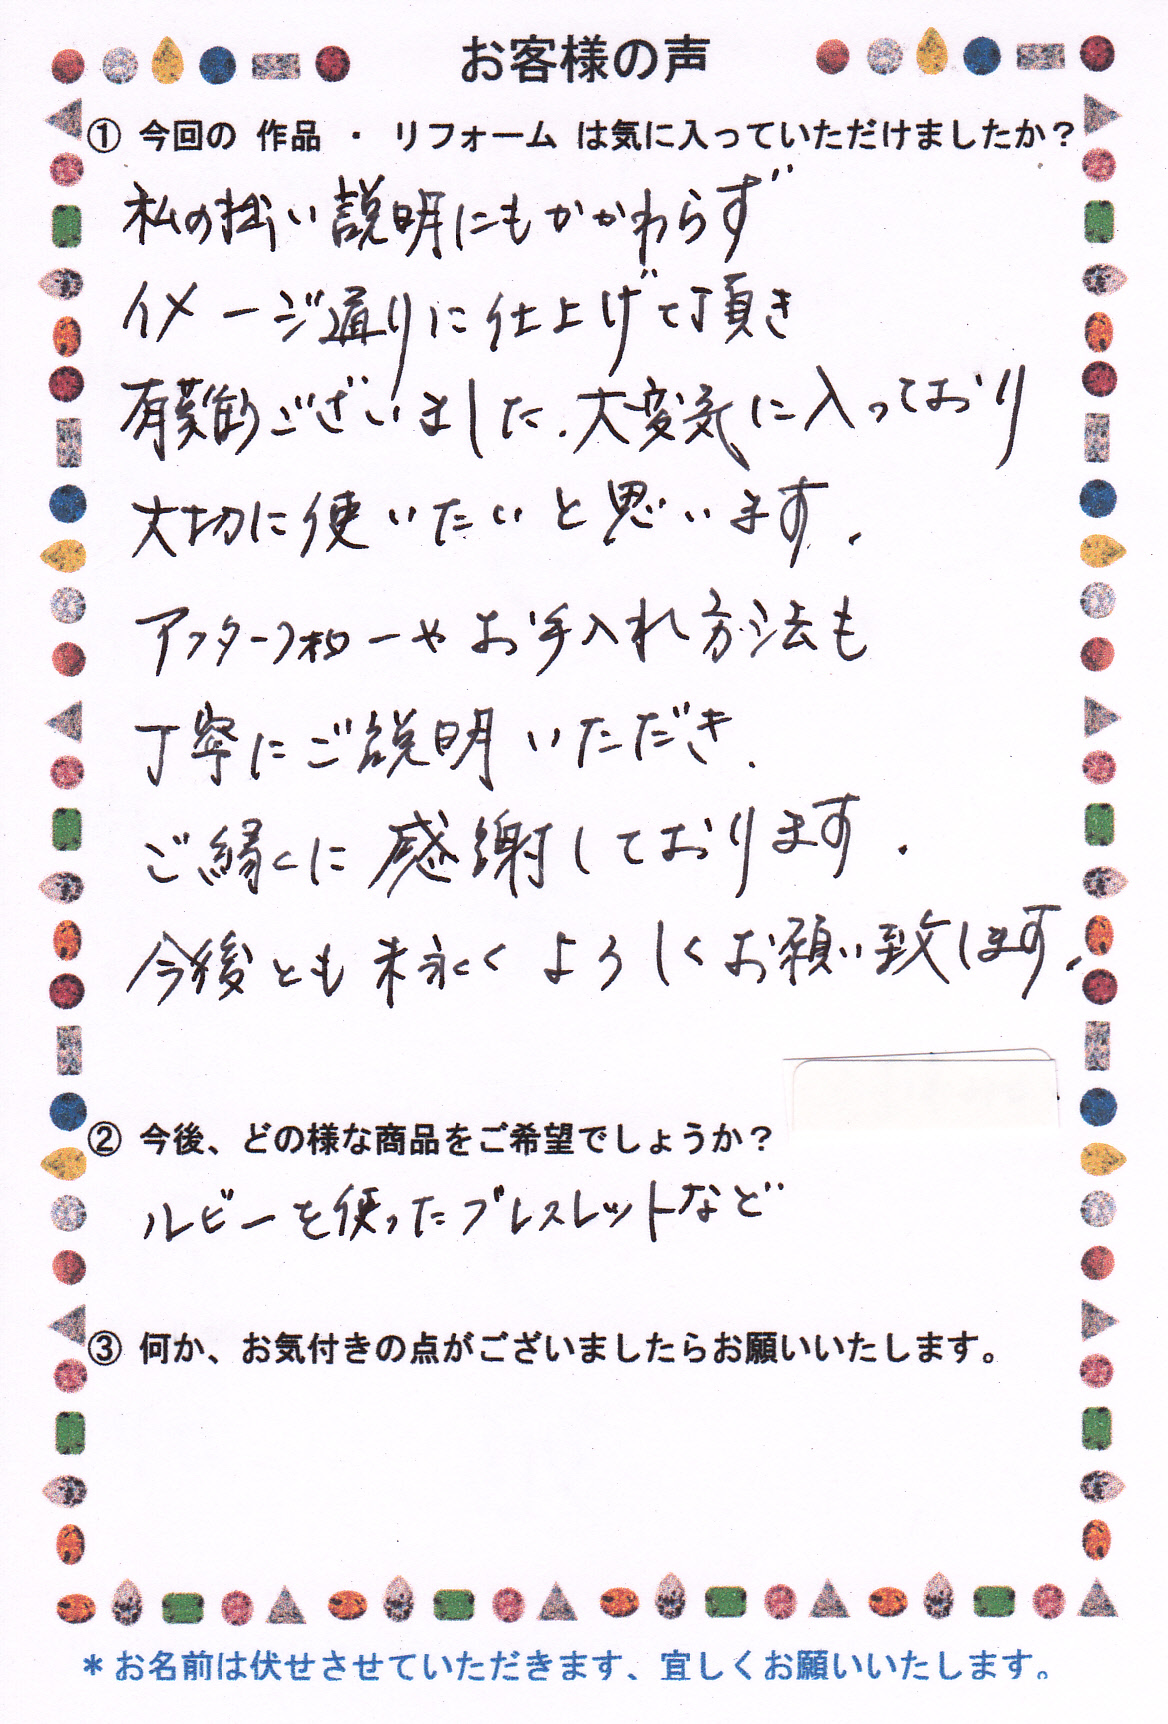 お客様の声
① 今回の 作品 ・ リフォーム は気に入っていただけましたか？
私の拙い説明にもかかわらず
イメージ通りに仕上げて頂き
有難うございました。大変気に入っており
大切に使いたいと思います。
アフターフォローやお手入れ方法も
丁寧にご説明いただき、
ご縁に感謝しております。
今後とも末永くよろしくお願い致します。
② 今後、どの様な商品をご希望でしょうか？
ルビーを使ったブレスレットなど
③ 何か、お気付きの点がございましたらお願いいたします。
＊お名前は伏せさせていただきます、宜しくお願いいたします。